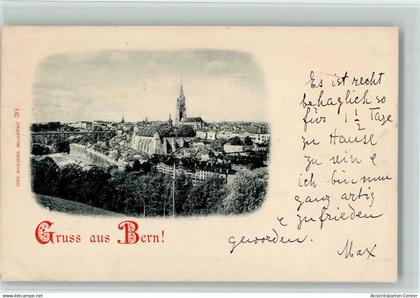 GEBR. METZGER, WALLENSTADT 20.
Gruss aus Bern!
Es ist recht
behaglich so
für 1 1/2 Tage
zu Hause
zu sein &
ich bin nun
ganz artig
& zufrieden
geworden.
Max
www.Ansichtskarten-Center.de